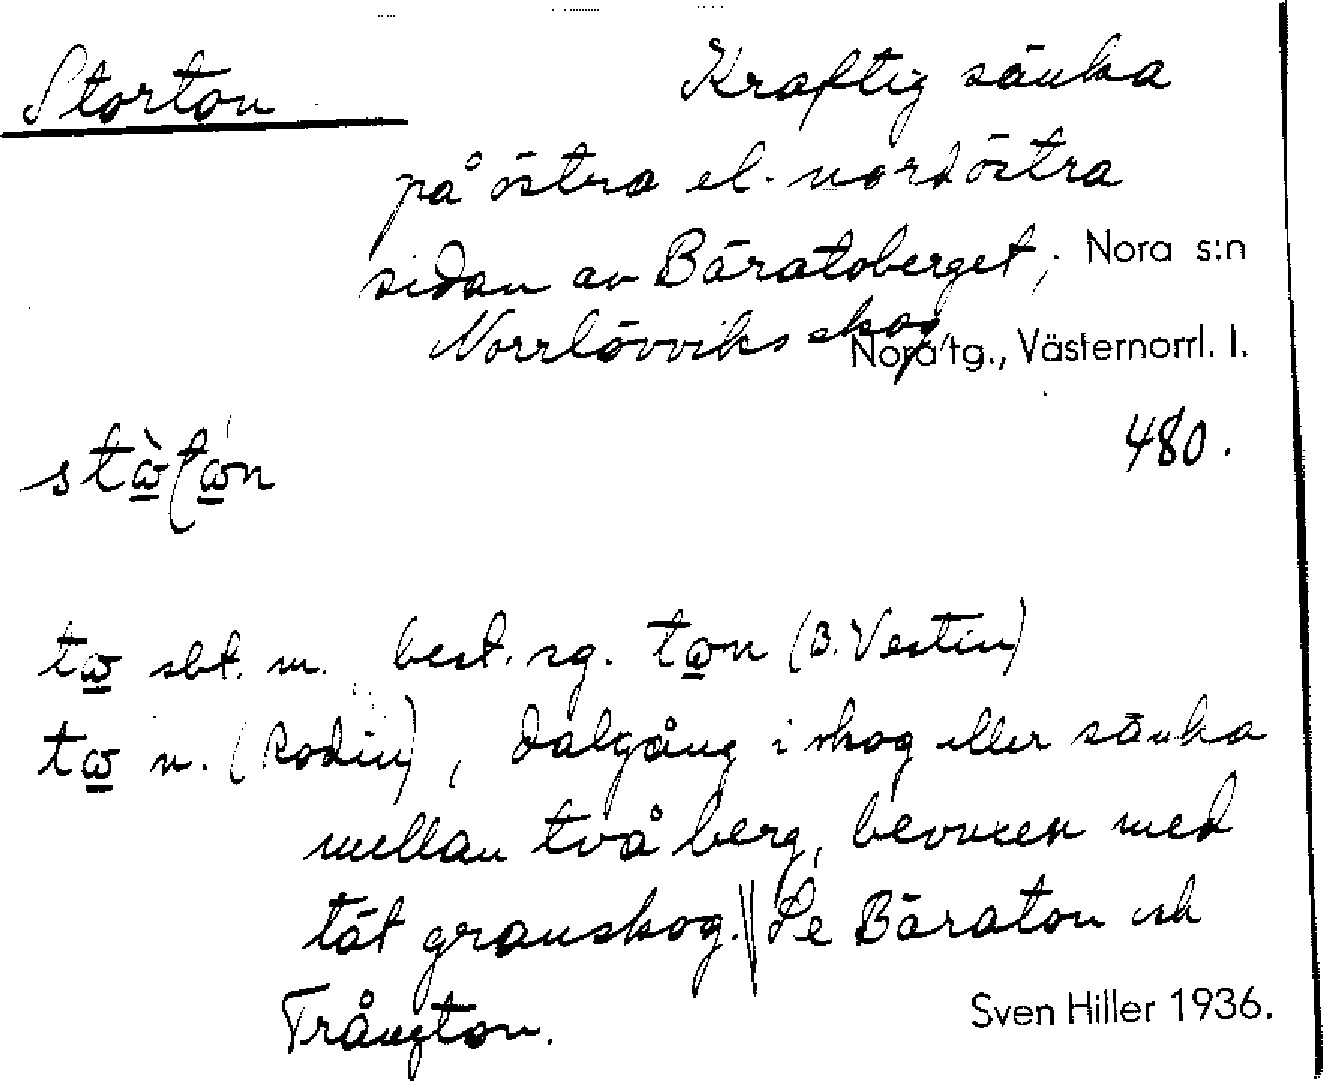 Storton
Kraftig sänka
på östra el. nordöstra
sidan av Bäratoberget; Nora s:n
Norrlövviks skog,
Nora tg., Västernorrl. l.
480.
best. sg.
sbt. m. (B. Vestin)
n. (Rodin), dalgång i skog eller sänka
mellan två berg, bevuxen med
tät granskog. || Se Bäraton och
Trångton.
Sven Hiller 1936.